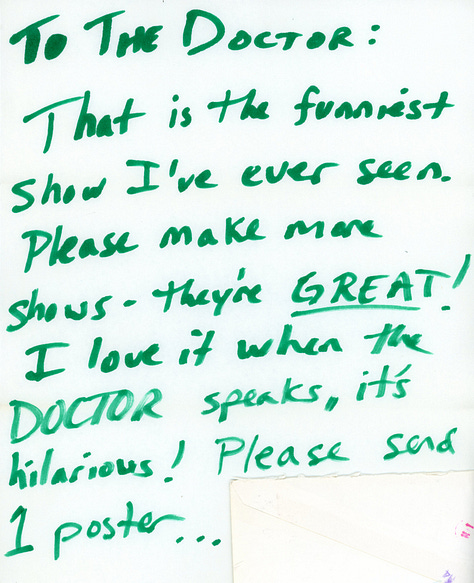 To The Doctor:
That is the funniest
show I've ever seen.
Please make more
shows - they're GREAT!
I love it when the
DOCTOR speaks, it's
hilarious! Please send
1 poster...
#1